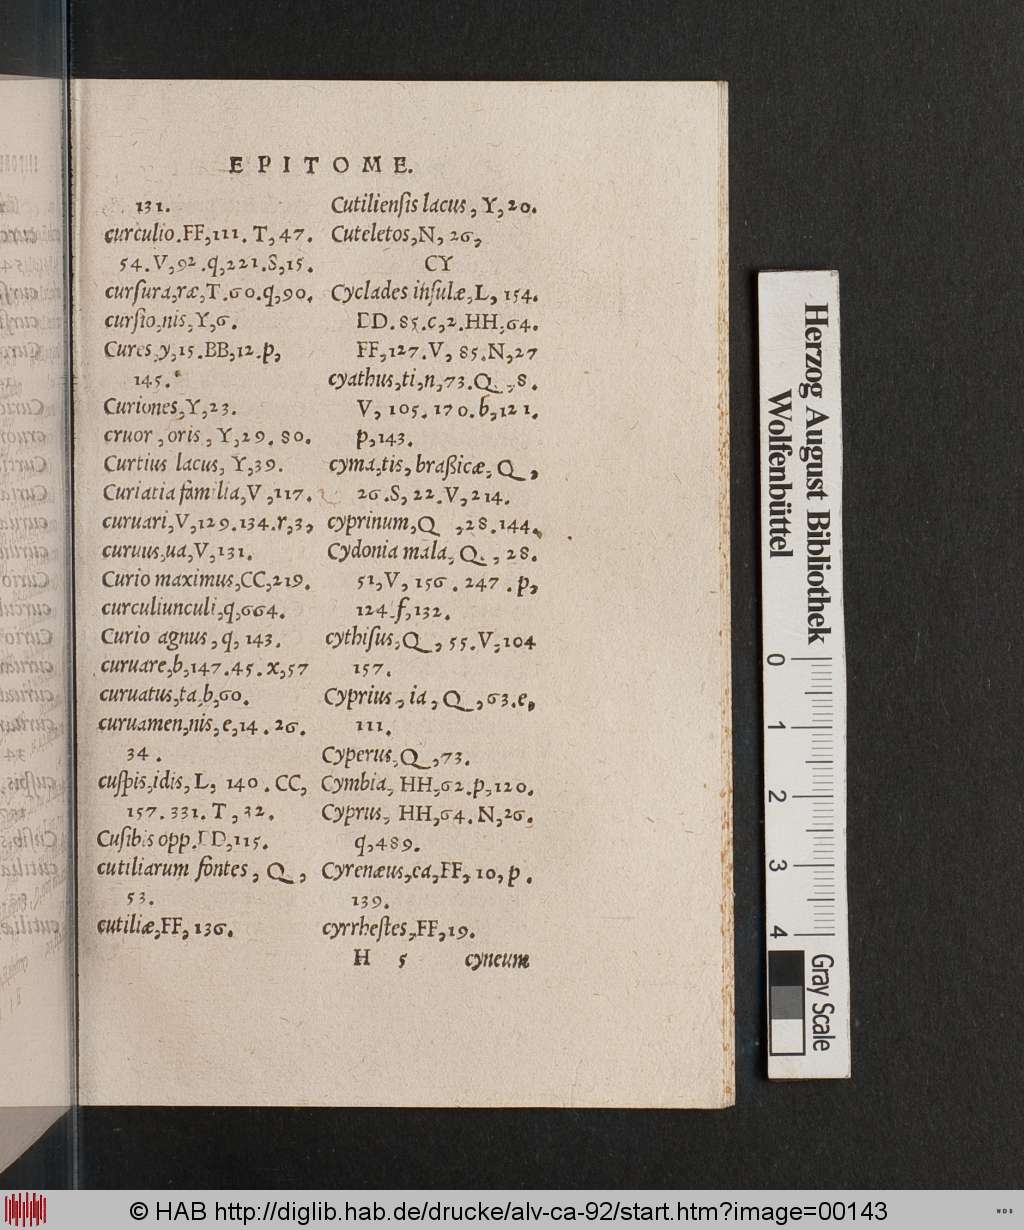 EPITOME.
131.
curculio.FF,111. T,47.
54.V,92.q,221.S,15.
cursura,ræ,T.60.q,90.
cursio,nis,Y,6.
Cures,y,15.BB,12.p,
145.
Curiones,Y,23.
cruor,oris, Y,29.80.
Curtius lacus, Y,39.
Curiatia familia,V,117.
curuari,V,129.134.r,3,
curuus,ua,V,131.
Curio maximus,CC,219.
curculiunculi,q,664.
Curio agnus, q, 143.
curuare,b,147.45.x,57
curuatus,ta,b,60.
curuamen,nis,e,14.26.
34.
cuspis,idis, L, 140. CC,
157.331. T, 32.
Cusibis opp.DD,115.
cutiliarum fontes, Q,
53.
cutiliæ,FF, 136.
Cutiliensis lacus, Y,20.
Cuteletos,N, 26,
CY
Cyclades insulæ,L, 154.
DD.85.c,2.HH,64.
FF,127.V, 85.N,27
cyathus,ti,n,73.Q,8.
V, 105.170.b,121.
p,143.
cyma,tis, braßicæ, Q,
26.S, 22.V,214.
cyprinum,Q,28.144.
Cydonia mala, Q, 28.
51,V, 156. 247. p,
124.f,132.
cythisus,Q, 55.V,104
157.
Cyprius, ia, Q,63.e,
111.
Cyperus,Q,73.
Cymbia, HH,62.p,120.
Cyprus, HH,64. N,26.
q,489.
Cyrenæus,ca,FF, 10, p.
139.
cyrrhestes,FF,19.
H 5 cyneum
Herzog August Bibliothek
Wolfenbüttel
0 1 2 3 4
Gray Scale
© HAB http://diglib.hab.de/drucke/alv-ca-92/start.htm?image=00143
WDB